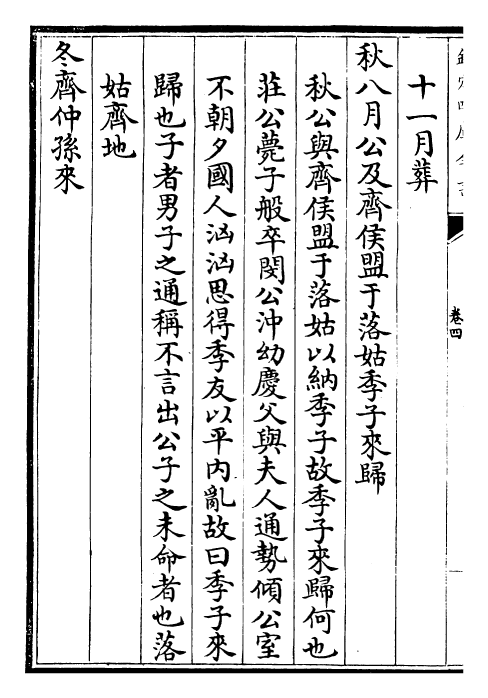 卷四
十一月葬
秋八月公及齊侯盟于落姑季子來歸
秋公與齊侯盟于落姑以納季子故季子來歸何也
莊公薨子般卒閔公沖幼慶父與夫人通勢傾公室
不朝夕國人洶洶思得季友以平内亂故曰季子來
歸也子者男子之通稱不言出公子之未命者也落
姑齊地
冬齊仲孫來